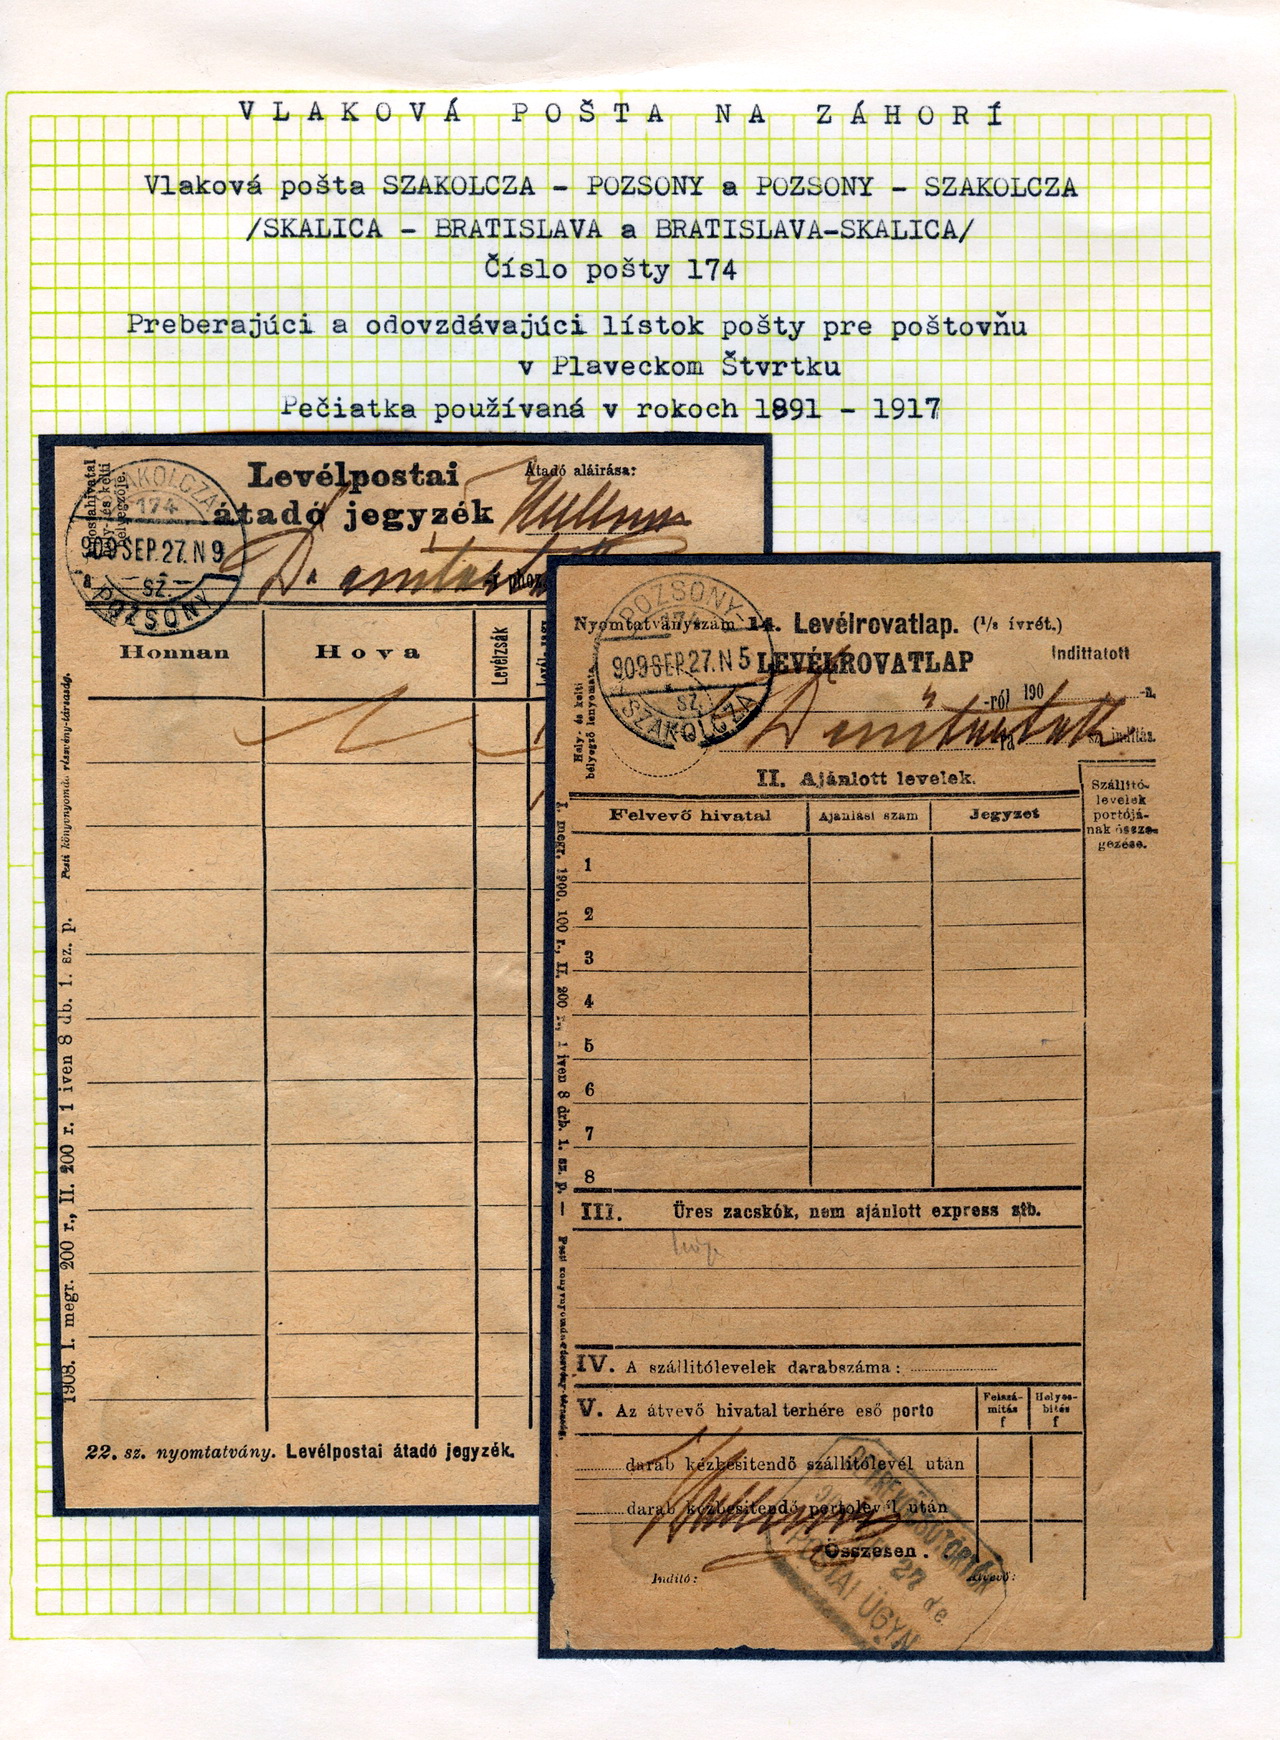 VLAKOVÁ POŠTA NA ZÁHORÍ
Vlaková pošta SZAKOLCZA - POZSONY a POZSONY - SZAKOLCZA
/SKALICA - BRATISLAVA a BRATISLAVA-SKALICA/
Číslo pošty 174
Preberajúci a odovzdávajúci lístok pošty pre poštovňu
v Plaveckom Štvrtku
Pečiatka používaná v rokoch 1891 - 1917
Levélpostai
átadó jegyzék
Átadó aláirása:
SZAKOLCZA
174
909 SEP. 27. N 9
a SZ.
POZSONY
Honnan
Hova
Levélzsák
1908. I. megr. 200 r., II. 200 r. 1 iven 8 db. 1. sz. p. - Pesti könyvnyomda részvény-társaság.
22. sz. nyomtatvány. Levélpostai átadó jegyzék.
POZSONY-
174
909 SEP. 27. N 5
SZ.
SZAKOLCZA
Nyomtatványszám 14. Levélrovatlap. (1/8 ívrét.)
LEVÉLROVATLAP
Indittatott
-ról 190 -n.
-ra sz. inditás.
Hely- és kelti
bélyegző lenyomata.
II. Ajánlott levelek.
Szállító-
levelek
portójá-
nak össze-
gezése.
Felvevő hivatal
Ajánlási szám
Jegyzet
1
2
3
4
5
6
7
8
III. Üres zacskók, nem ajánlott express stb.
IV. A szállitólevelek darabszáma:
V. Az átvevő hivatal terhére eső porto
Felszá-
mitás
f
Helyes-
bités
f
darab kézbesitendő szállitólevél után
darab kézbesitendő portolevél után
Összesen.
Inditó:
Átvevő:
I. megr. 1900. 100 r., II. 200 r., 1 iven 8 drb. 1. sz. p. — Pesti könyvnyomda-részvény-társaság.
27 de.
POSTAI ÜGYN